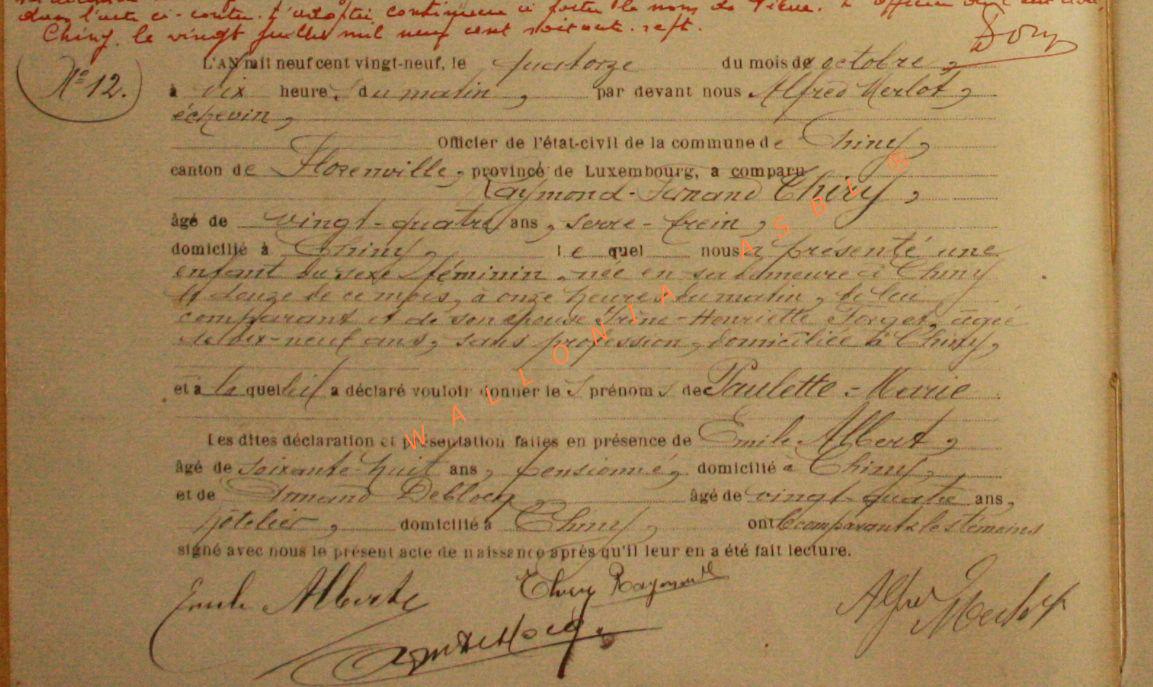 dans l'acte ci-contre continuera à porter le nom de
Chiny, le vingt juillet mil neuf cent soixante-sept.
N° 12.
L'AN mil neuf cent vingt-neuf, le quatorze du mois de octobre,
à dix heures du matin, par devant nous Alfred Merlot,
échevin,
Officier de l'état-civil de la commune de Chiny,
canton de Florenville, province de Luxembourg, a comparu
Raymond-Fernand Thiry,
âgé de vingt-quatre ans, serre-frein,
domicilié à Chiny, lequel nous a présenté une
enfant du sexe féminin, née en sa demeure à Chiny
le douze de ce mois, à onze heures du matin, de lui
comparant et de son épouse Irène-Henriette Forget, âgée
de dix-neuf ans, sans profession, domiciliée à Chiny,
et à laquelle il a déclaré vouloir donner les prénoms de Paulette-Marie
Les dites déclaration et présentation faites en présence de Emile Albert,
âgé de soixante-huit ans, pensionné, domicilié à Chiny,
et de Fernand Deblocq, âgé de vingt-quatre ans,
hôtelier, domicilié à Chiny, ont le comparant et les témoins
signé avec nous le présent acte de naissance après qu'il leur en a été fait lecture.
Emile Alberte
Thiry Raymond
Alfred Merlot
WALLONIA ASBL ®